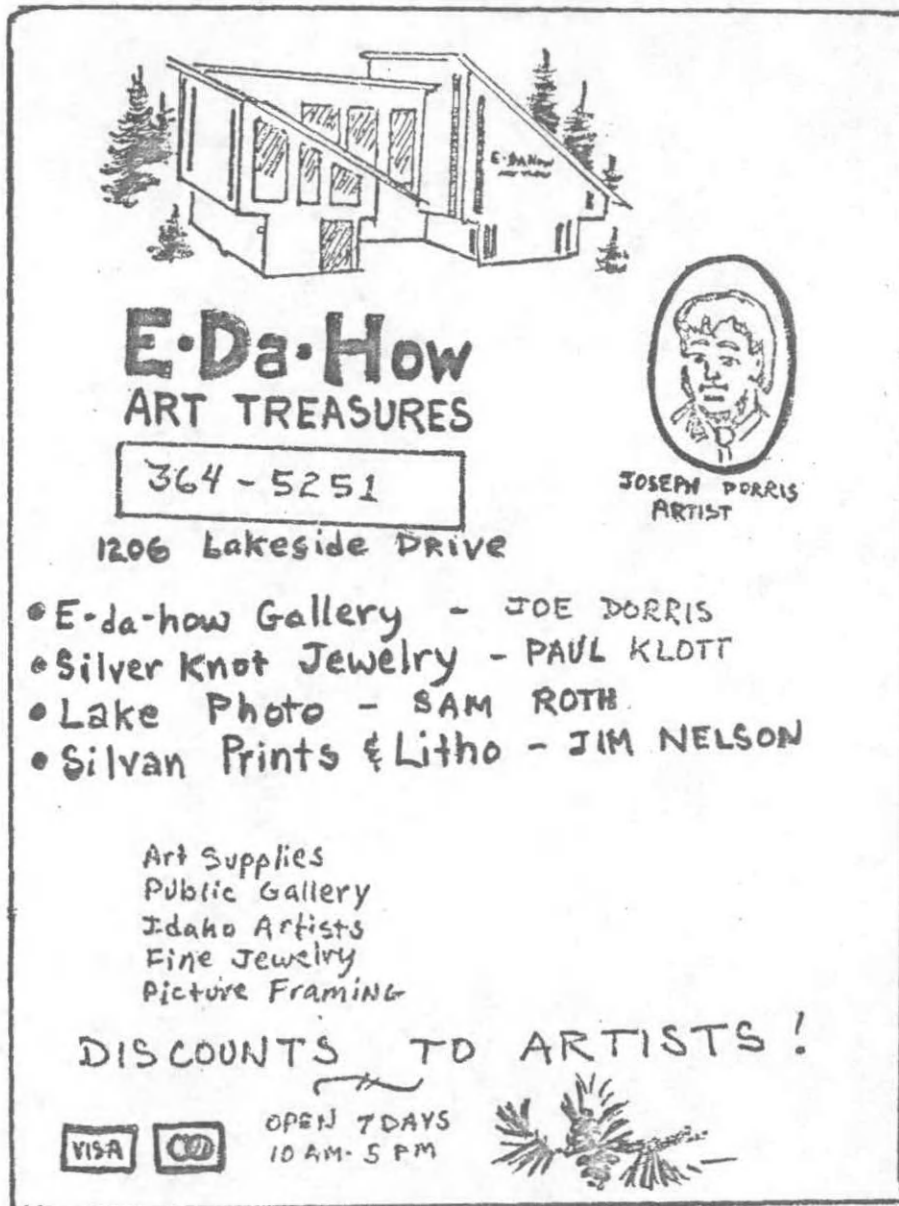 E·DA HOW
E·Da·How
ART TREASURES
364-5251
1206 Lakeside DRive
JOSEPH DORRIS
ARTIST
• E-da-how Gallery - JOE DORRIS
• Silver Knot Jewelry - PAUL KLOTT
• Lake Photo - SAM ROTH
• Silvan Prints & Litho - JIM NELSON
Art Supplies
Public Gallery
Idaho Artists
Fine Jewelry
Picture FramiNG
DISCOUNTS TO ARTISTS!
OPEN 7 DAYS
10 AM - 5 PM
VISA